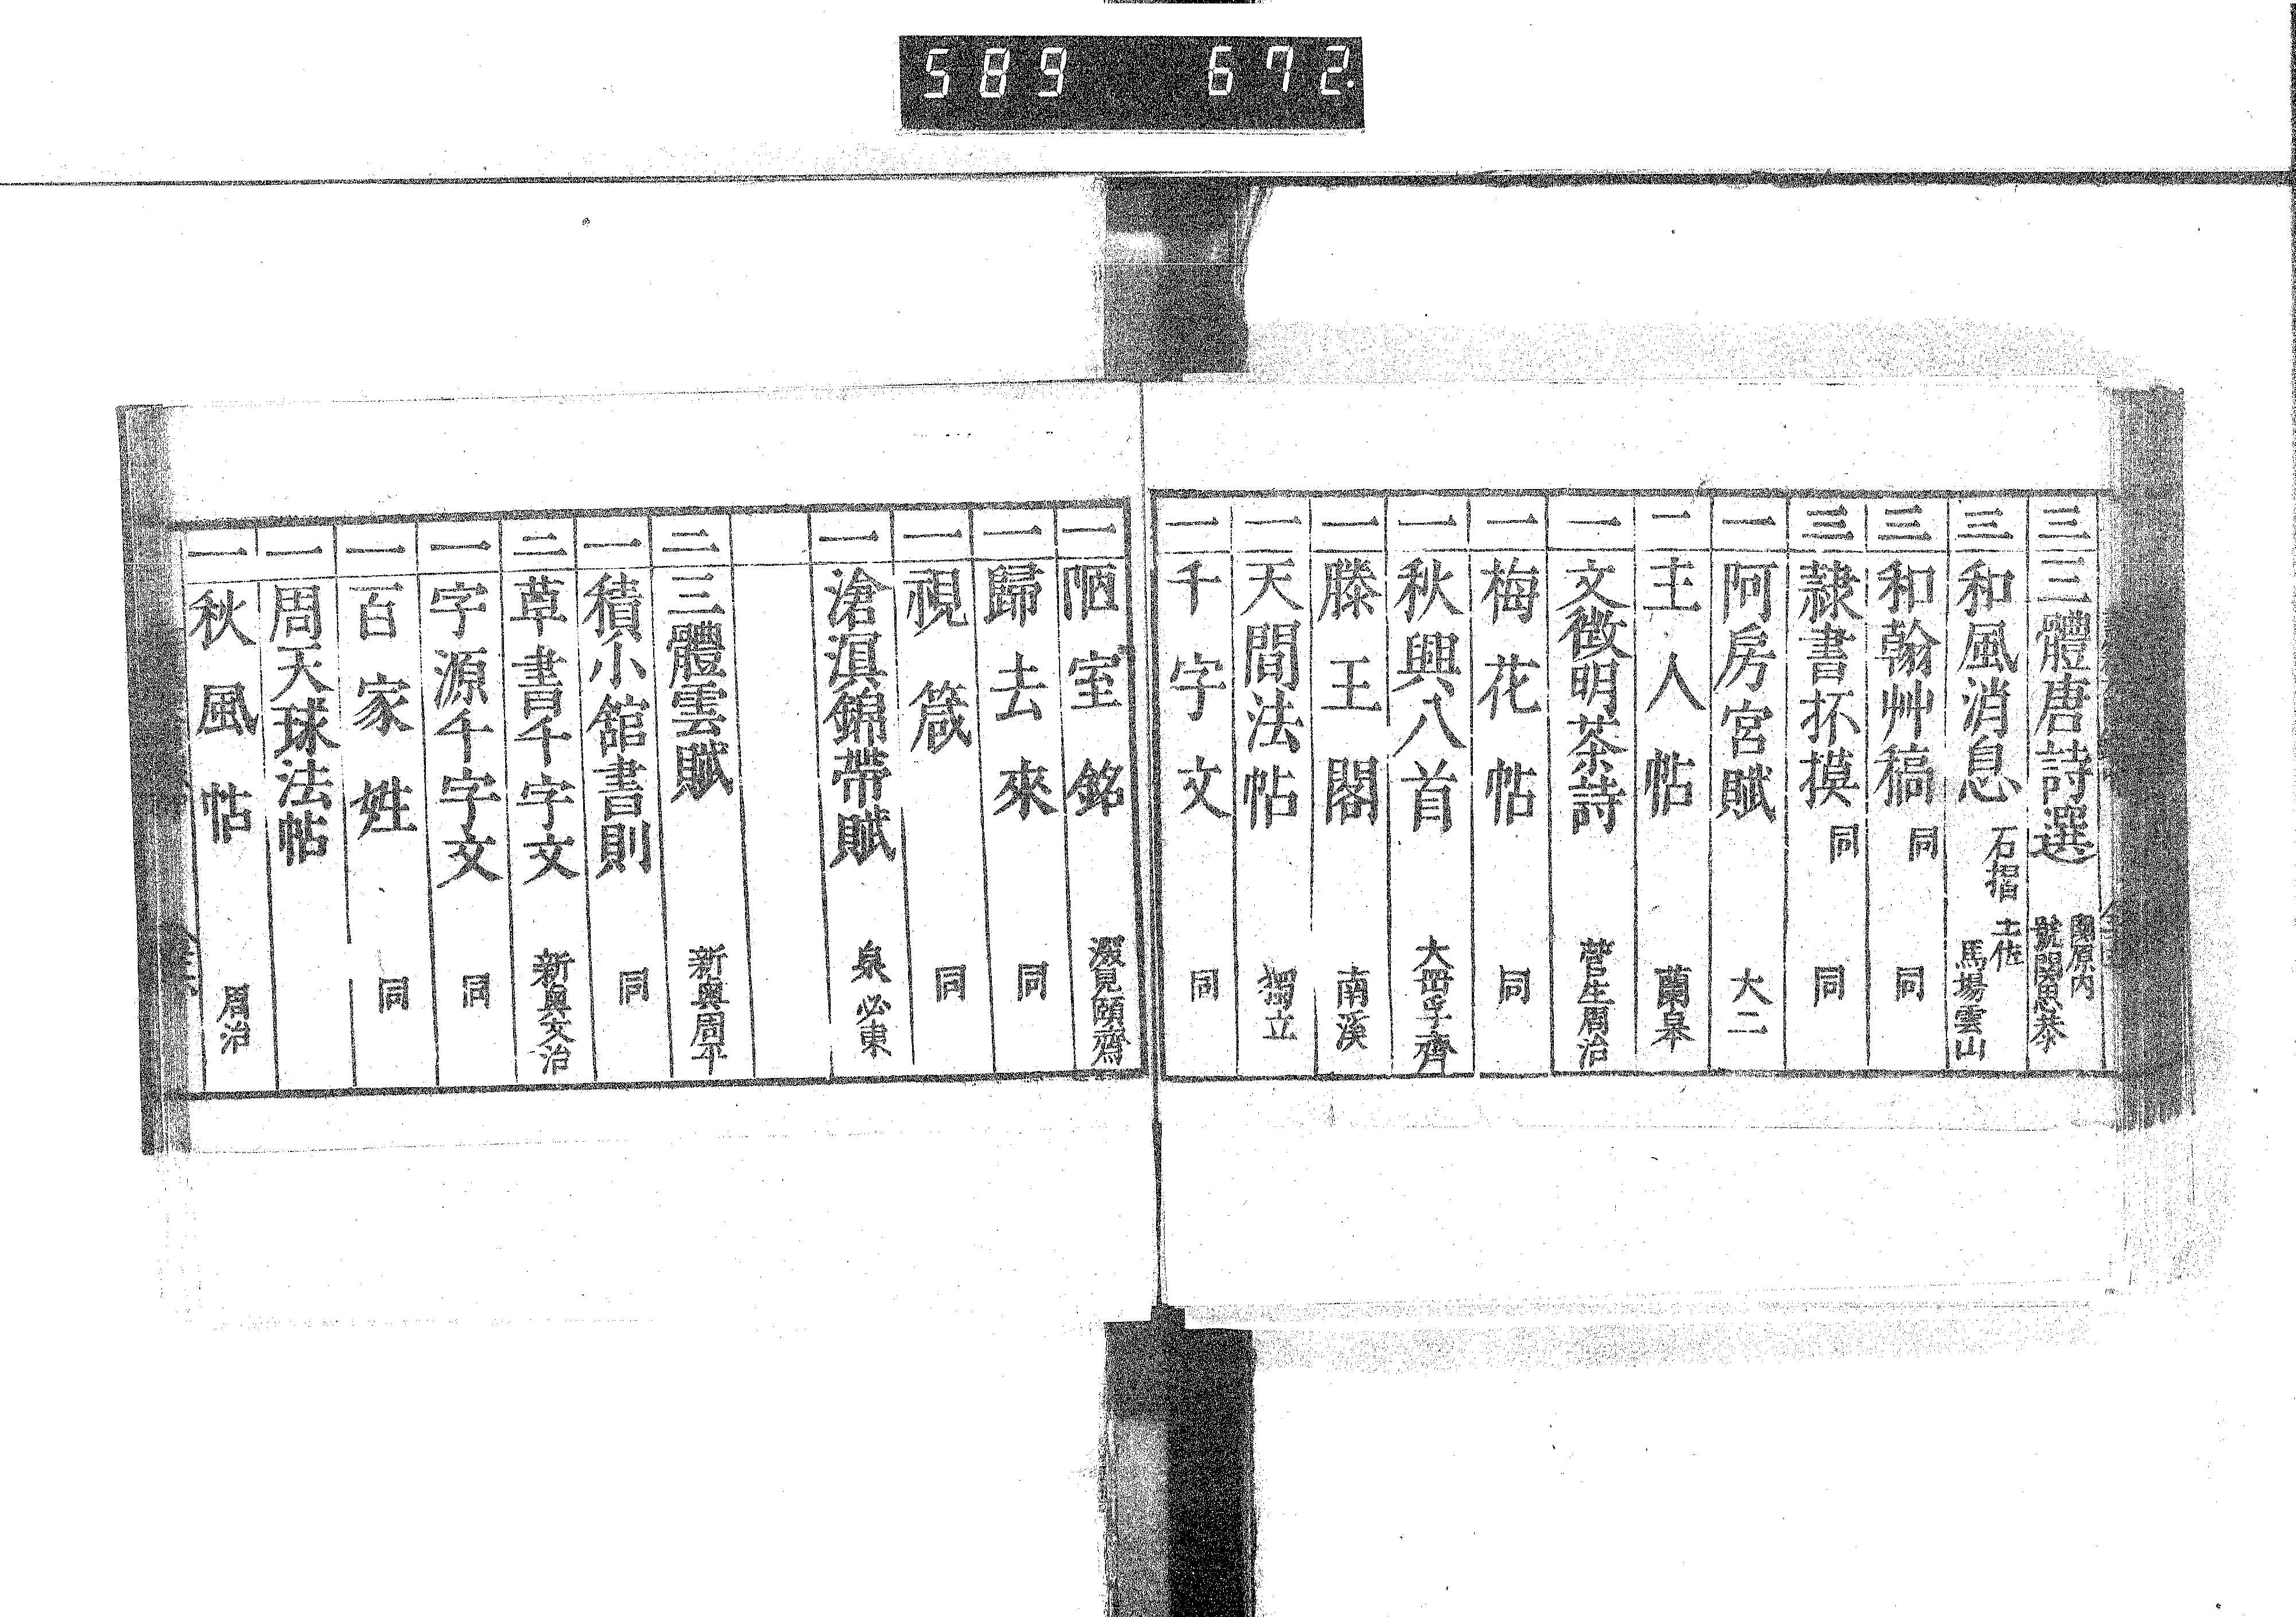 589 672.
三 三體唐詩選
三 和風消息 石摺 土佐 馬場雲山
三 和翰艸稿 同 同
三 隷書抔摸 同 同
一 阿房宮賦 大二
二 主人帖 蘭皐
一 文徴明茶詩 菅生周治
一 梅花帖 同
一 秋興八首 大
一 滕王閣 南溪
一 天間法帖 獨立
一 千字文 同
一 陋室銘 深見頤齋
一 歸去來 同
一 視箴 同
一 滄溟錦帶賦 泉必東
二 三體雲賦 新興周平
一 積小舘書則 同
二 草書千字文 新興文治
一 字源千字文 同
一 百家姓 同
一 周天球法帖
一 秋風帖 周治